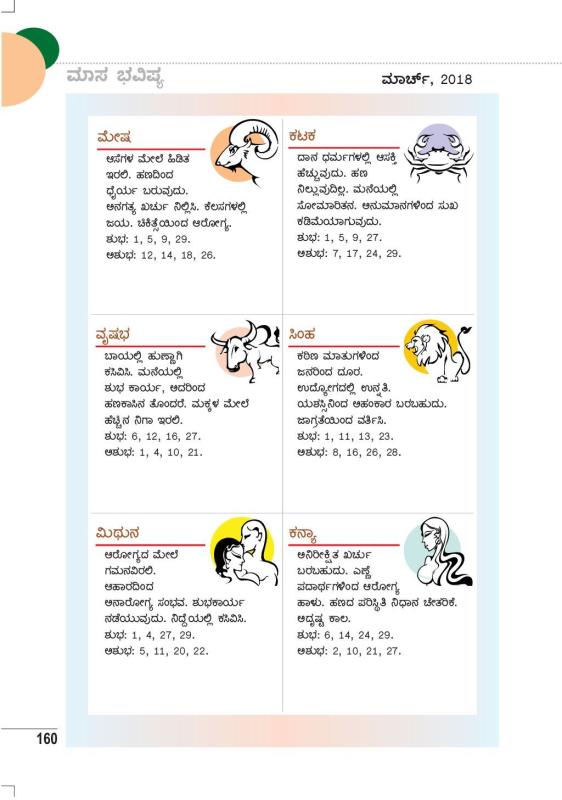 ಮಾಸ ಭವಿಷ್ಯ
ಮಾರ್ಚ್, 2018
ಮೇಷ
ಆಸೆಗಳ ಮೇಲೆ ಹಿಡಿತ
ಇರಲಿ. ಹಣದಿಂದ
ಧೈರ್ಯ ಬರುವುದು.
ಅನಗತ್ಯ ಖರ್ಚು ನಿಲ್ಲಿಸಿ. ಕೆಲಸಗಳಲ್ಲಿ
ಜಯ. ಚಿಕಿತ್ಸೆಯಿಂದ ಆರೋಗ್ಯ.
ಶುಭ: 1, 5, 9, 29.
ಅಶುಭ: 12, 14, 18, 26.
ಕಟಕ
ದಾನ ಧರ್ಮಗಳಲ್ಲಿ ಆಸಕ್ತಿ
ಹೆಚ್ಚುವುದು. ಹಣ
ನಿಲ್ಲುವುದಿಲ್ಲ. ಮನೆಯಲ್ಲಿ
ಸೋಮಾರಿತನ. ಅನುಮಾನಗಳಿಂದ ಸುಖ
ಕಡಿಮೆಯಾಗುವುದು.
ಶುಭ: 1, 5, 9, 27.
ಅಶುಭ: 7, 17, 24, 29.
ವೃಷಭ
ಬಾಯಲ್ಲಿ ಹುಣ್ಣಾಗಿ
ಕಸಿವಿಸಿ. ಮನೆಯಲ್ಲಿ
ಶುಭ ಕಾರ್ಯ, ಅದರಿಂದ
ಹಣಕಾಸಿನ ತೊಂದರೆ. ಮಕ್ಕಳ ಮೇಲೆ
ಹೆಚ್ಚಿನ ನಿಗಾ ಇರಲಿ.
ಶುಭ: 6, 12, 16, 27.
ಅಶುಭ: 1, 4, 10, 21.
ಸಿಂಹ
ಕಠಿಣ ಮಾತುಗಳಿಂದ
ಜನರಿಂದ ದೂರ.
ಉದ್ಯೋಗದಲ್ಲಿ ಉನ್ನತಿ.
ಯಶಸ್ಸಿನಿಂದ ಅಹಂಕಾರ ಬರಬಹುದು.
ಜಾಗ್ರತೆಯಿಂದ ವರ್ತಿಸಿ.
ಶುಭ: 1, 11, 13, 23.
ಅಶುಭ: 8, 16, 26, 28.
ಮಿಥುನ
ಆರೋಗ್ಯದ ಮೇಲೆ
ಗಮನವಿರಲಿ.
ಆಹಾರದಿಂದ
ಅನಾರೋಗ್ಯ ಸಂಭವ. ಶುಭಕಾರ್ಯ
ನಡೆಯುವುದು. ನಿದ್ದೆಯಲ್ಲಿ ಕಸಿವಿಸಿ.
ಶುಭ: 1, 4, 27, 29.
ಅಶುಭ: 5, 11, 20, 22.
ಕನ್ಯಾ
ಅನಿರೀಕ್ಷಿತ ಖರ್ಚು
ಬರಬಹುದು. ಎಣ್ಣೆ
ಪದಾರ್ಥಗಳಿಂದ ಆರೋಗ್ಯ
ಹಾಳು. ಹಣದ ಪರಿಸ್ಥಿತಿ ನಿಧಾನ ಚೇತರಿಕೆ.
ಅದೃಷ್ಟ ಕಾಲ.
ಶುಭ: 6, 14, 24, 29.
ಅಶುಭ: 2, 10, 21, 27.
160